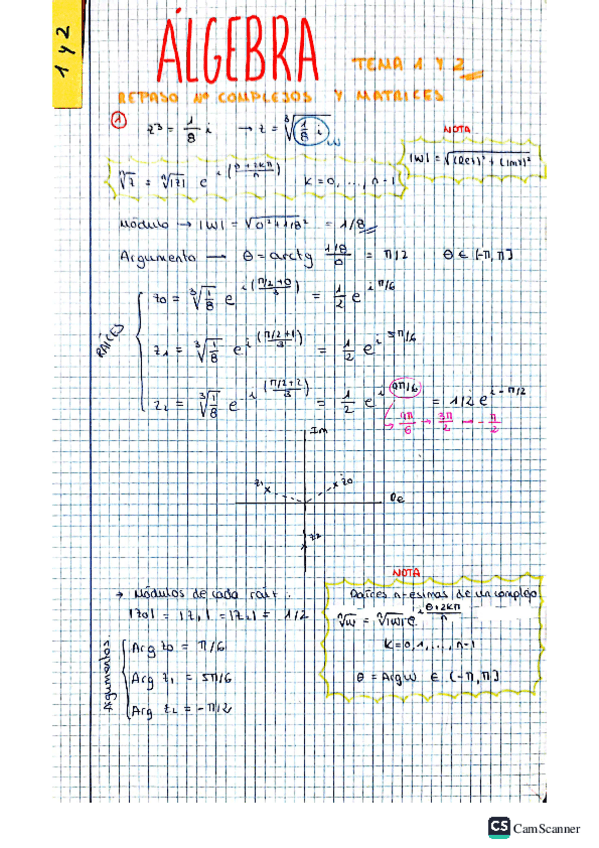 1 y 2
ÁLGEBRA
TEMA 1 Y 2
REPASO Nº COMPLEJOS Y MATRICES
① z³ = 1/8 i → z = ³√(1/8 i) w
NOTA
|W| = √((Re)² + (Im)²)
ⁿ√z = ⁿ√|z| e^i((θ+2kπ)/n) k = 0, ..., n-1
Módulo → |W| = √(0² + 1/8²) = 1/8
Argumento → θ = arctg (1/8)/0 = π/2 θ ∈ (-π, π]
RAÍCES
z0 = ³√(1/8) e^i((π/2+0)/3) = 1/2 e^i π/6
z1 = ³√(1/8) e^i((π/2+1)/3) = 1/2 e^i 5π/6
z2 = ³√(1/8) e^i((π/2+2)/3) = 1/2 e^i 9π/6 = 1/2 e^i -π/2
→ 9π/6 → 3π/2 → -π/2
Im
z1 z0
Re
z2
NOTA
→ Módulos de cada raíz:
|z0| = |z1| = |z2| = 1/2
Raíces n-ésimas de un complejo
ⁿ√w = ⁿ√|w| e^i (θ+2kπ)/n
k = 0, 1, ..., n-1
θ = Arg w ∈ (-π, π]
Argumentos
Arg z0 = π/6
Arg z1 = 5π/6
Arg z2 = -π/2
CS CamScanner